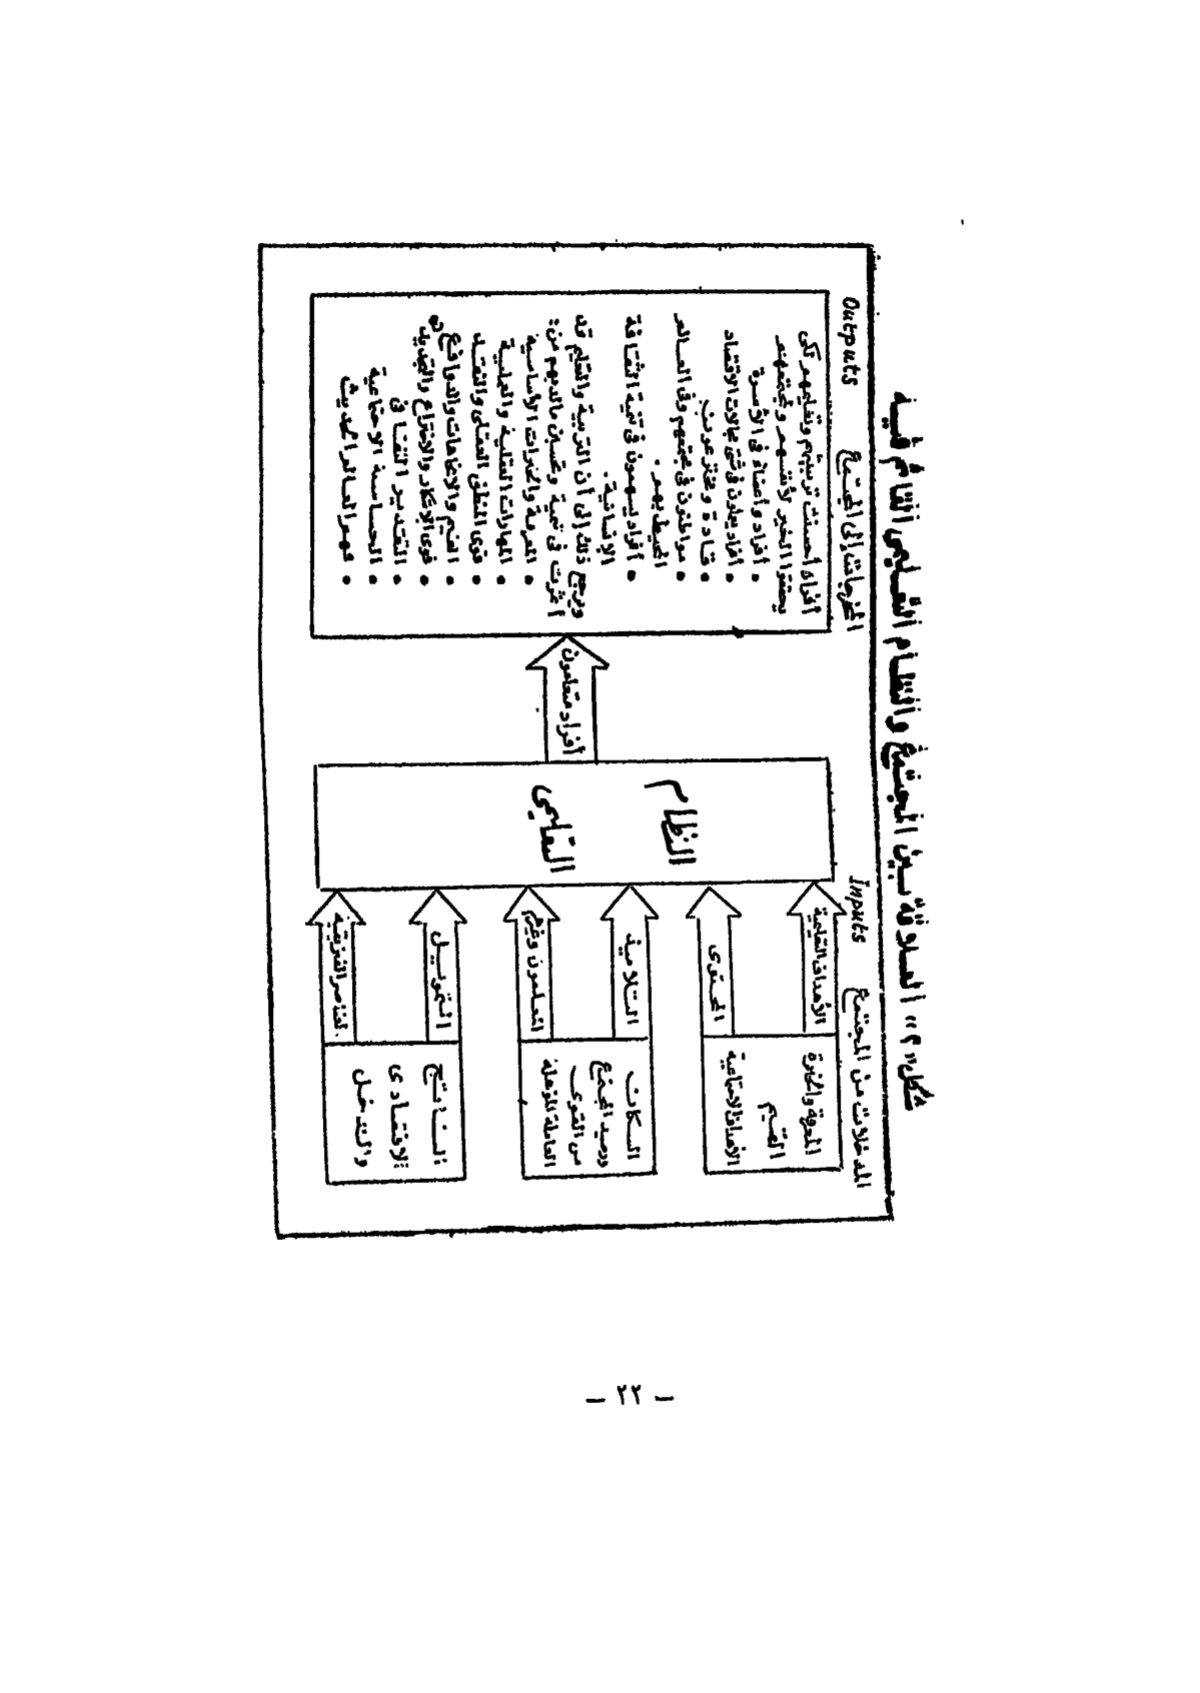 شكل «٢» العلاقة بين المجتمع والنظام التعليمى القائم فيه
المدخلات من المجتمع Inputs
المخرجات إلى المجتمع Outputs
المعرفة والخبرة
القيم
الأهداف الاجتماعية
السكان
ورصيد المجتمع
من القوى
العاملة المؤهلة
الناتج
الاقتصادى
والدخل
الأهداف التعليمية
المحتوى
التلاميذ
المعلمون وغيرهم
التمويل
العناصر الفيزيقية
النظام
التعليمى
أفراد متعلمون
أفراد أحسنت تربيتهم وتعليمهم لكى
يحققوا الخير لأنفسهم ومجتمعهم
• أفراد وأعضاء فى الأسرة
• أفراد يعملون فى شتى مجالات الاقتصاد
• قادة ومخترعون
• مواطنون فى مجتمعهم وفى العالم
المحيط بهم .
• أفراد يسهمون فى تنمية الثقافة
الإنسانية .
ويرجع ذلك إلى أن التربية والتعليم قد
أثرت فى تنمية وتحسين مالديهم من :
• المعرفة والخبرات الأساسية
• المهارات العقلية والعملية
• قوى المنطق العقلى والنقد
• القيم والاتجاهات والدوافع
• قوى الابتكار والاختراع والتجديد
• التقدير الثقافى
• الحساسة الاجتماعية
• فهم العالم الحديث
— ٢٢ —